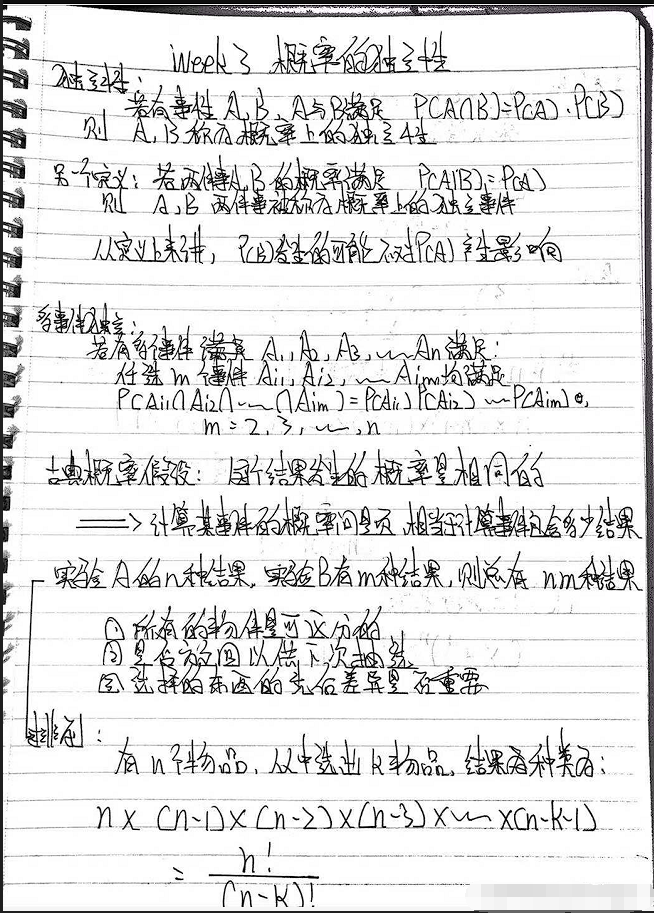 week3 概率的独立性
独立性:
若有事件 A,B, A与B满足 P(A∩B)=P(A)·P(B)
则 A,B 称为概率上的独立性
另一个定义: 若两件事A,B的概率满足 P(A|B)=P(A)
则 A,B 两件事被称为概率上的独立事件
从定义上来讲, P(B)发生的可能不对P(A)产生影响
多事件独立:
若有多个事件 满足 A₁,A₂,A₃,……An 满足:
任选 m 个事件 Ai₁,Ai₂,……Aim均满足
P(Ai₁∩Ai₂∩……∩Aim)=P(Ai₁)P(Ai₂)……P(Aim)
m=2,3,……,n
古典概率假设: 每个结果发生的概率是相同的
⟹ 计算某事件的概率问题 相当于计算事件包含多少结果
实验A的n种结果, 实验B有m种结果, 则总有 nm种结果
① 所有的物体是可区分的
② 是否放回以供下次抽选
③ 选择的东西的先后差异是否重要
排列:
有n个物品, 从中选出k物品, 结果有种类为:
n×(n-1)×(n-2)×(n-3)×……×(n-k-1)
= n!/(n-k)!